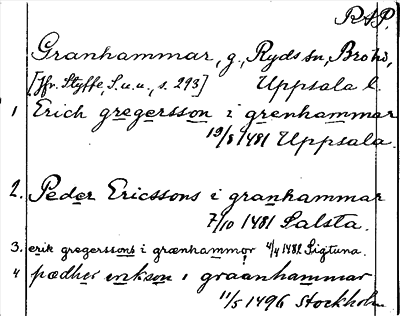 RAP.
Granhammar, g, Ryds sn, Bro hd,
[Jfr. Styffe, S.u.u., s. 293] Uppsala l.
1 Erich gregersson i grenhammar
19/8 1481 Uppsala.
2. Peder Ericssons i granhammar
7/10 1481 Salsta.
3. erik gregerssons i grænhammor 4/4 1482 Sigtuna.
4 pædher erikson i graanhammar
11/5 1496 Stockholm